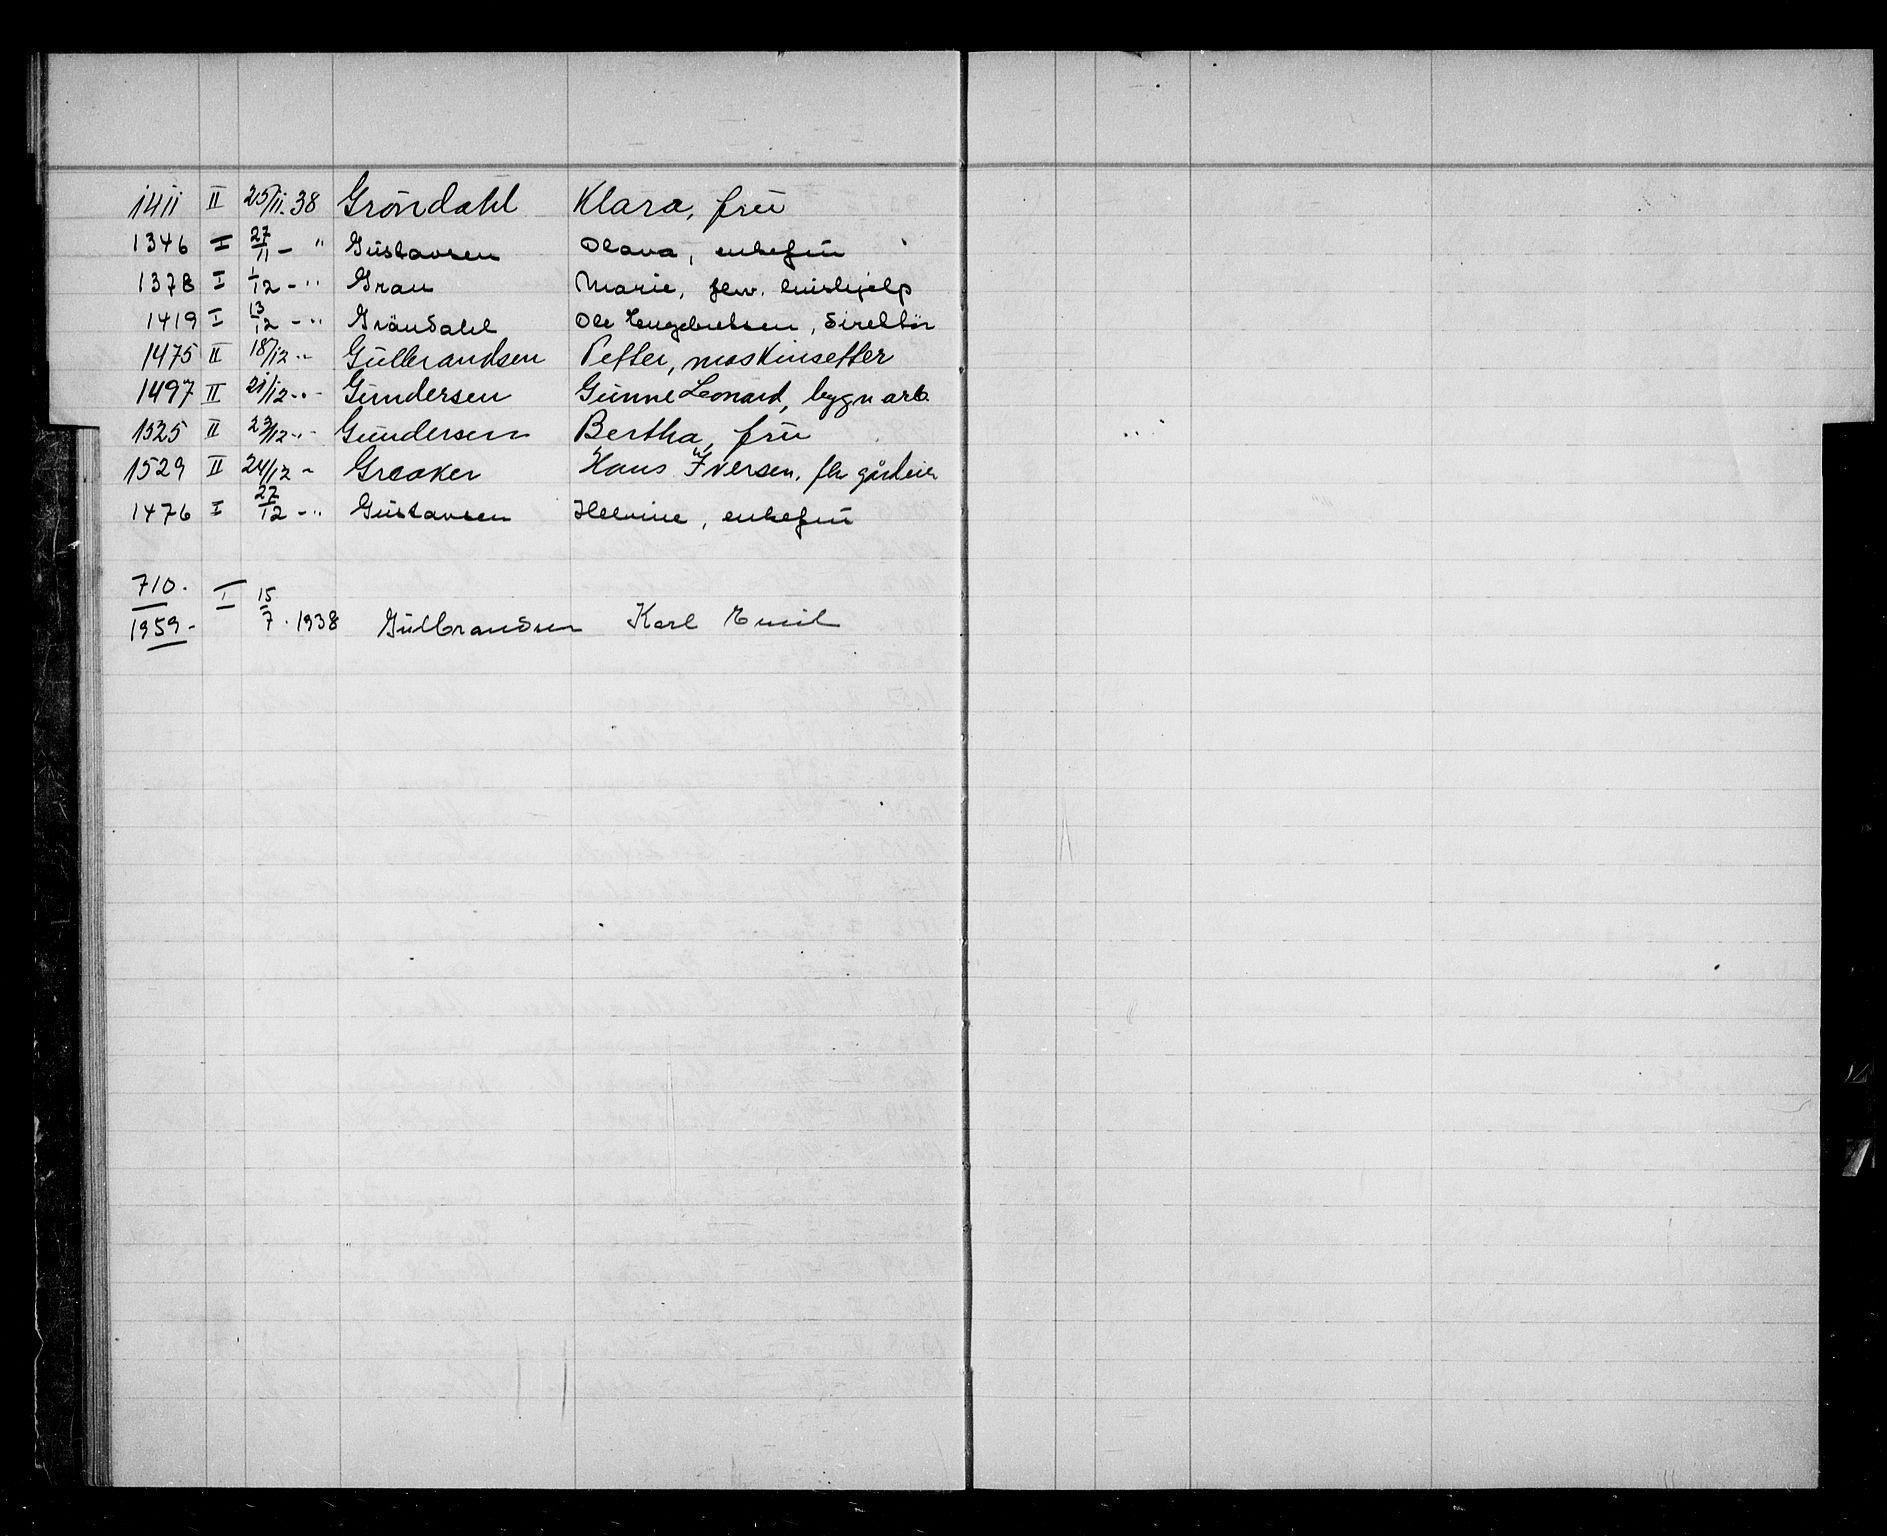 1411 II 25/11-38 Gröndahl Klara, frü
1346 I 27/11 - " Gustavsen Olava, enkefrü
1378 I 1/12 - " Gran Marie, hüshjelp
1419 I 13/12 - " Gröndahl Ole Engebretsen, direktör
1475 II 18/12 - " Gülbrandsen Petter, maskinsetter
1497 II 21/12 - " Gündersen Günne Leonard, bygn arb.
1525 II 23/12 - " Gündersen Bertha, frü
1529 II 24/12 " Greaker Hans Iversen, fhv gårdeier
1476 I 27/12 - " Güstavsen Helvine, enkefrü
710. I 15/7 . 1938 Gülbrandsen Karl Emil
1959 -